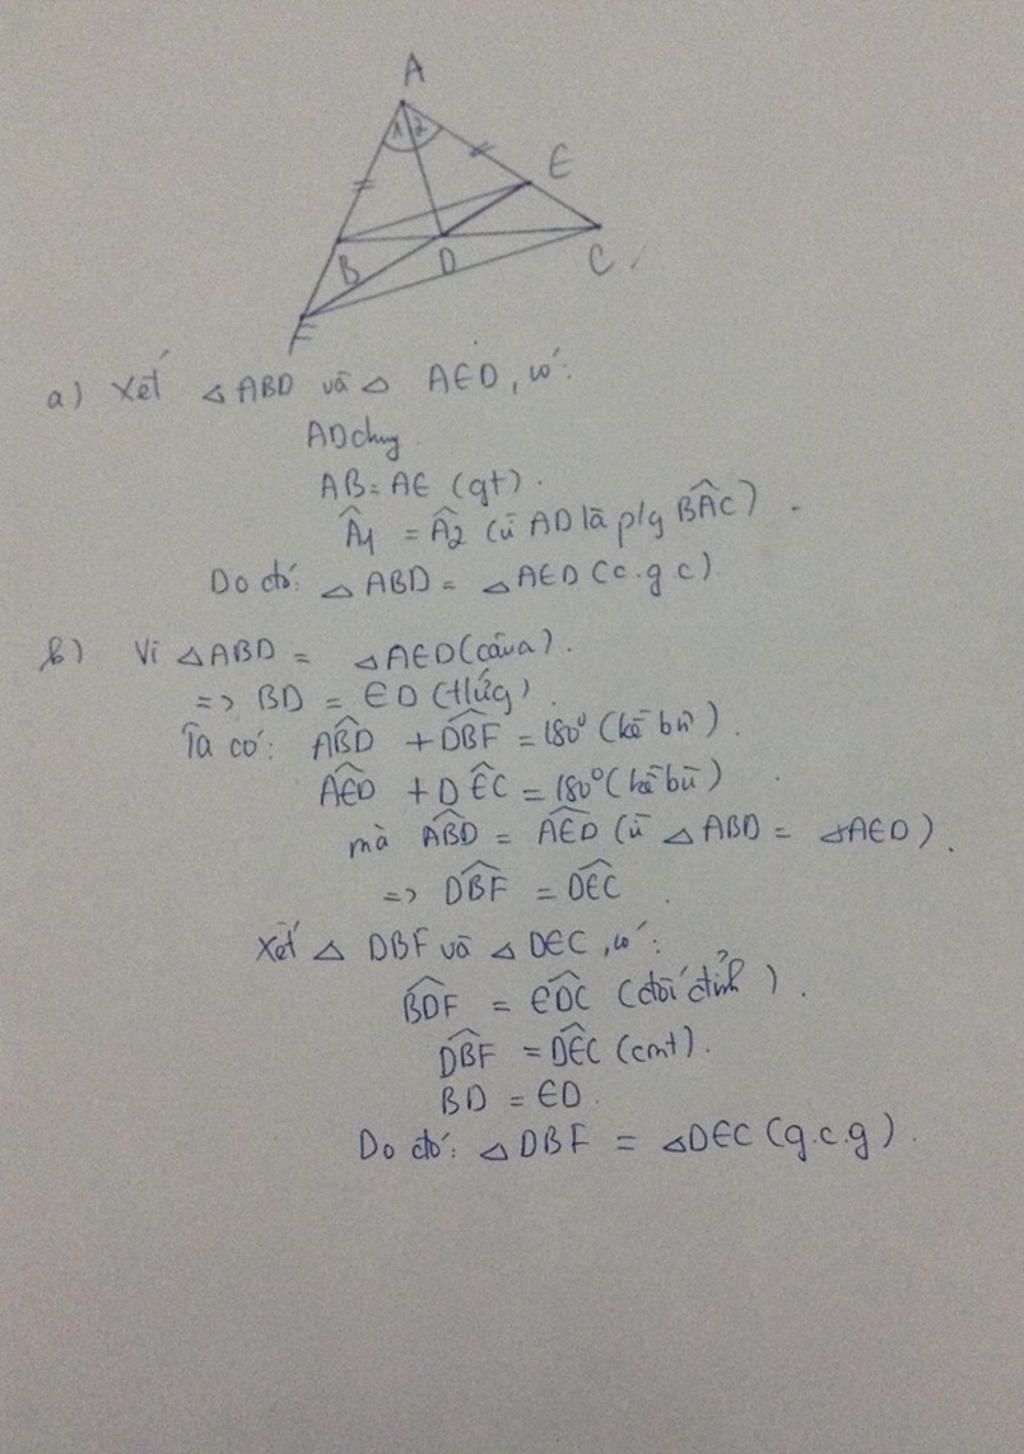 A
1 2
E
B D C
F
a) Xét △ABD và △ AED, có:
AD chung.
AB = AE (gt).
Â1 = Â2 (vì AD là p/g BÂC).
Do đó: △ ABD = △AED (c.g.c)
b) Vì △ABD = △AED (câu a).
=> BD = ED (t/ứng).
Ta có: AB̂D + DB̂F = 180⁰ (kề bù).
AÊD + DÊC = 180⁰ (kề bù)
mà AB̂D = AÊD (vì △ ABD = △AED).
=> DB̂F = DÊC.
Xét △ DBF và △ DEC, có:
BD̂F = ED̂C (đối đỉnh).
DB̂F = DÊC (cmt).
BD = ED.
Do đó: △DBF = △DEC (g.c.g).